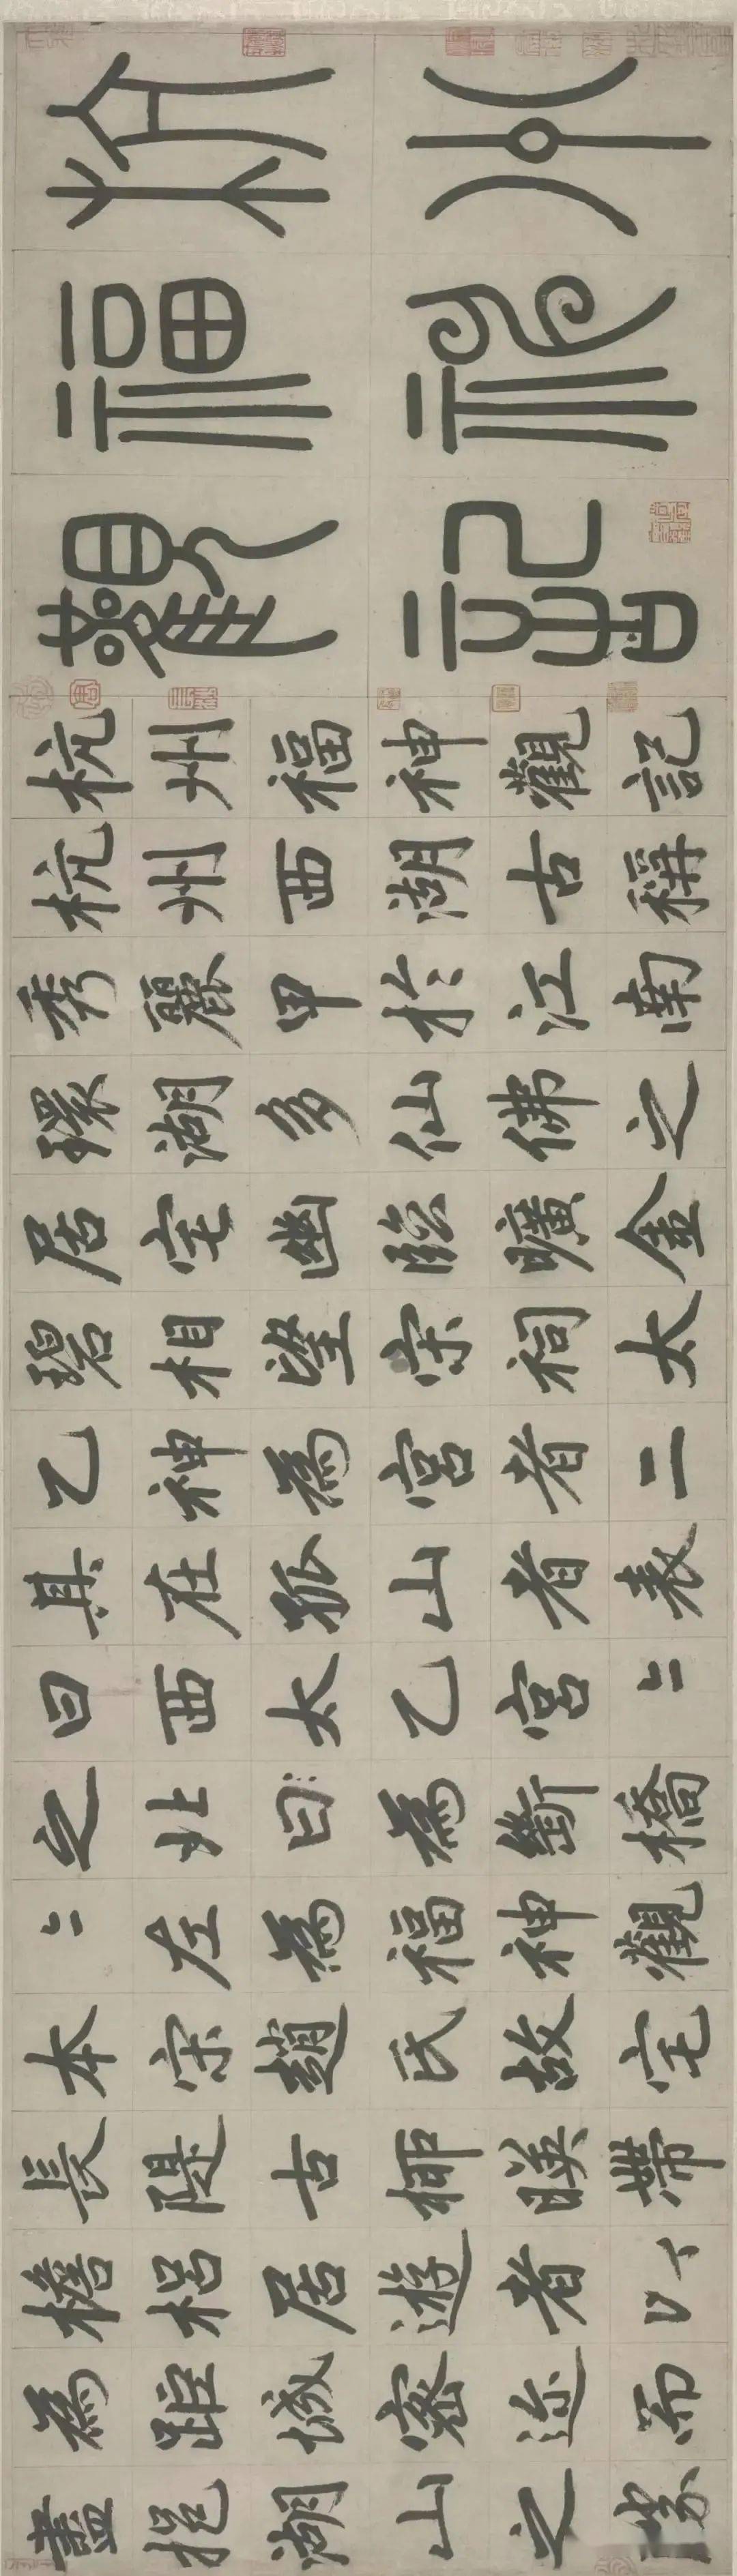 杭州
福神
觀記
杭州福神觀記
杭州西湖古稱
秀麗甲於江南
環湖多仙佛之
居宅幽臨曠金
碧相望宋祠太
乙神為宮者二
其在孤山者表
曰西太乙宮〻
之北曰為斷橋
〻左為福神觀
本宋趙氏故宅
長隄古柳暎帶
檐梠居遊者以
為距城密邇而
盡挹湖山之勝